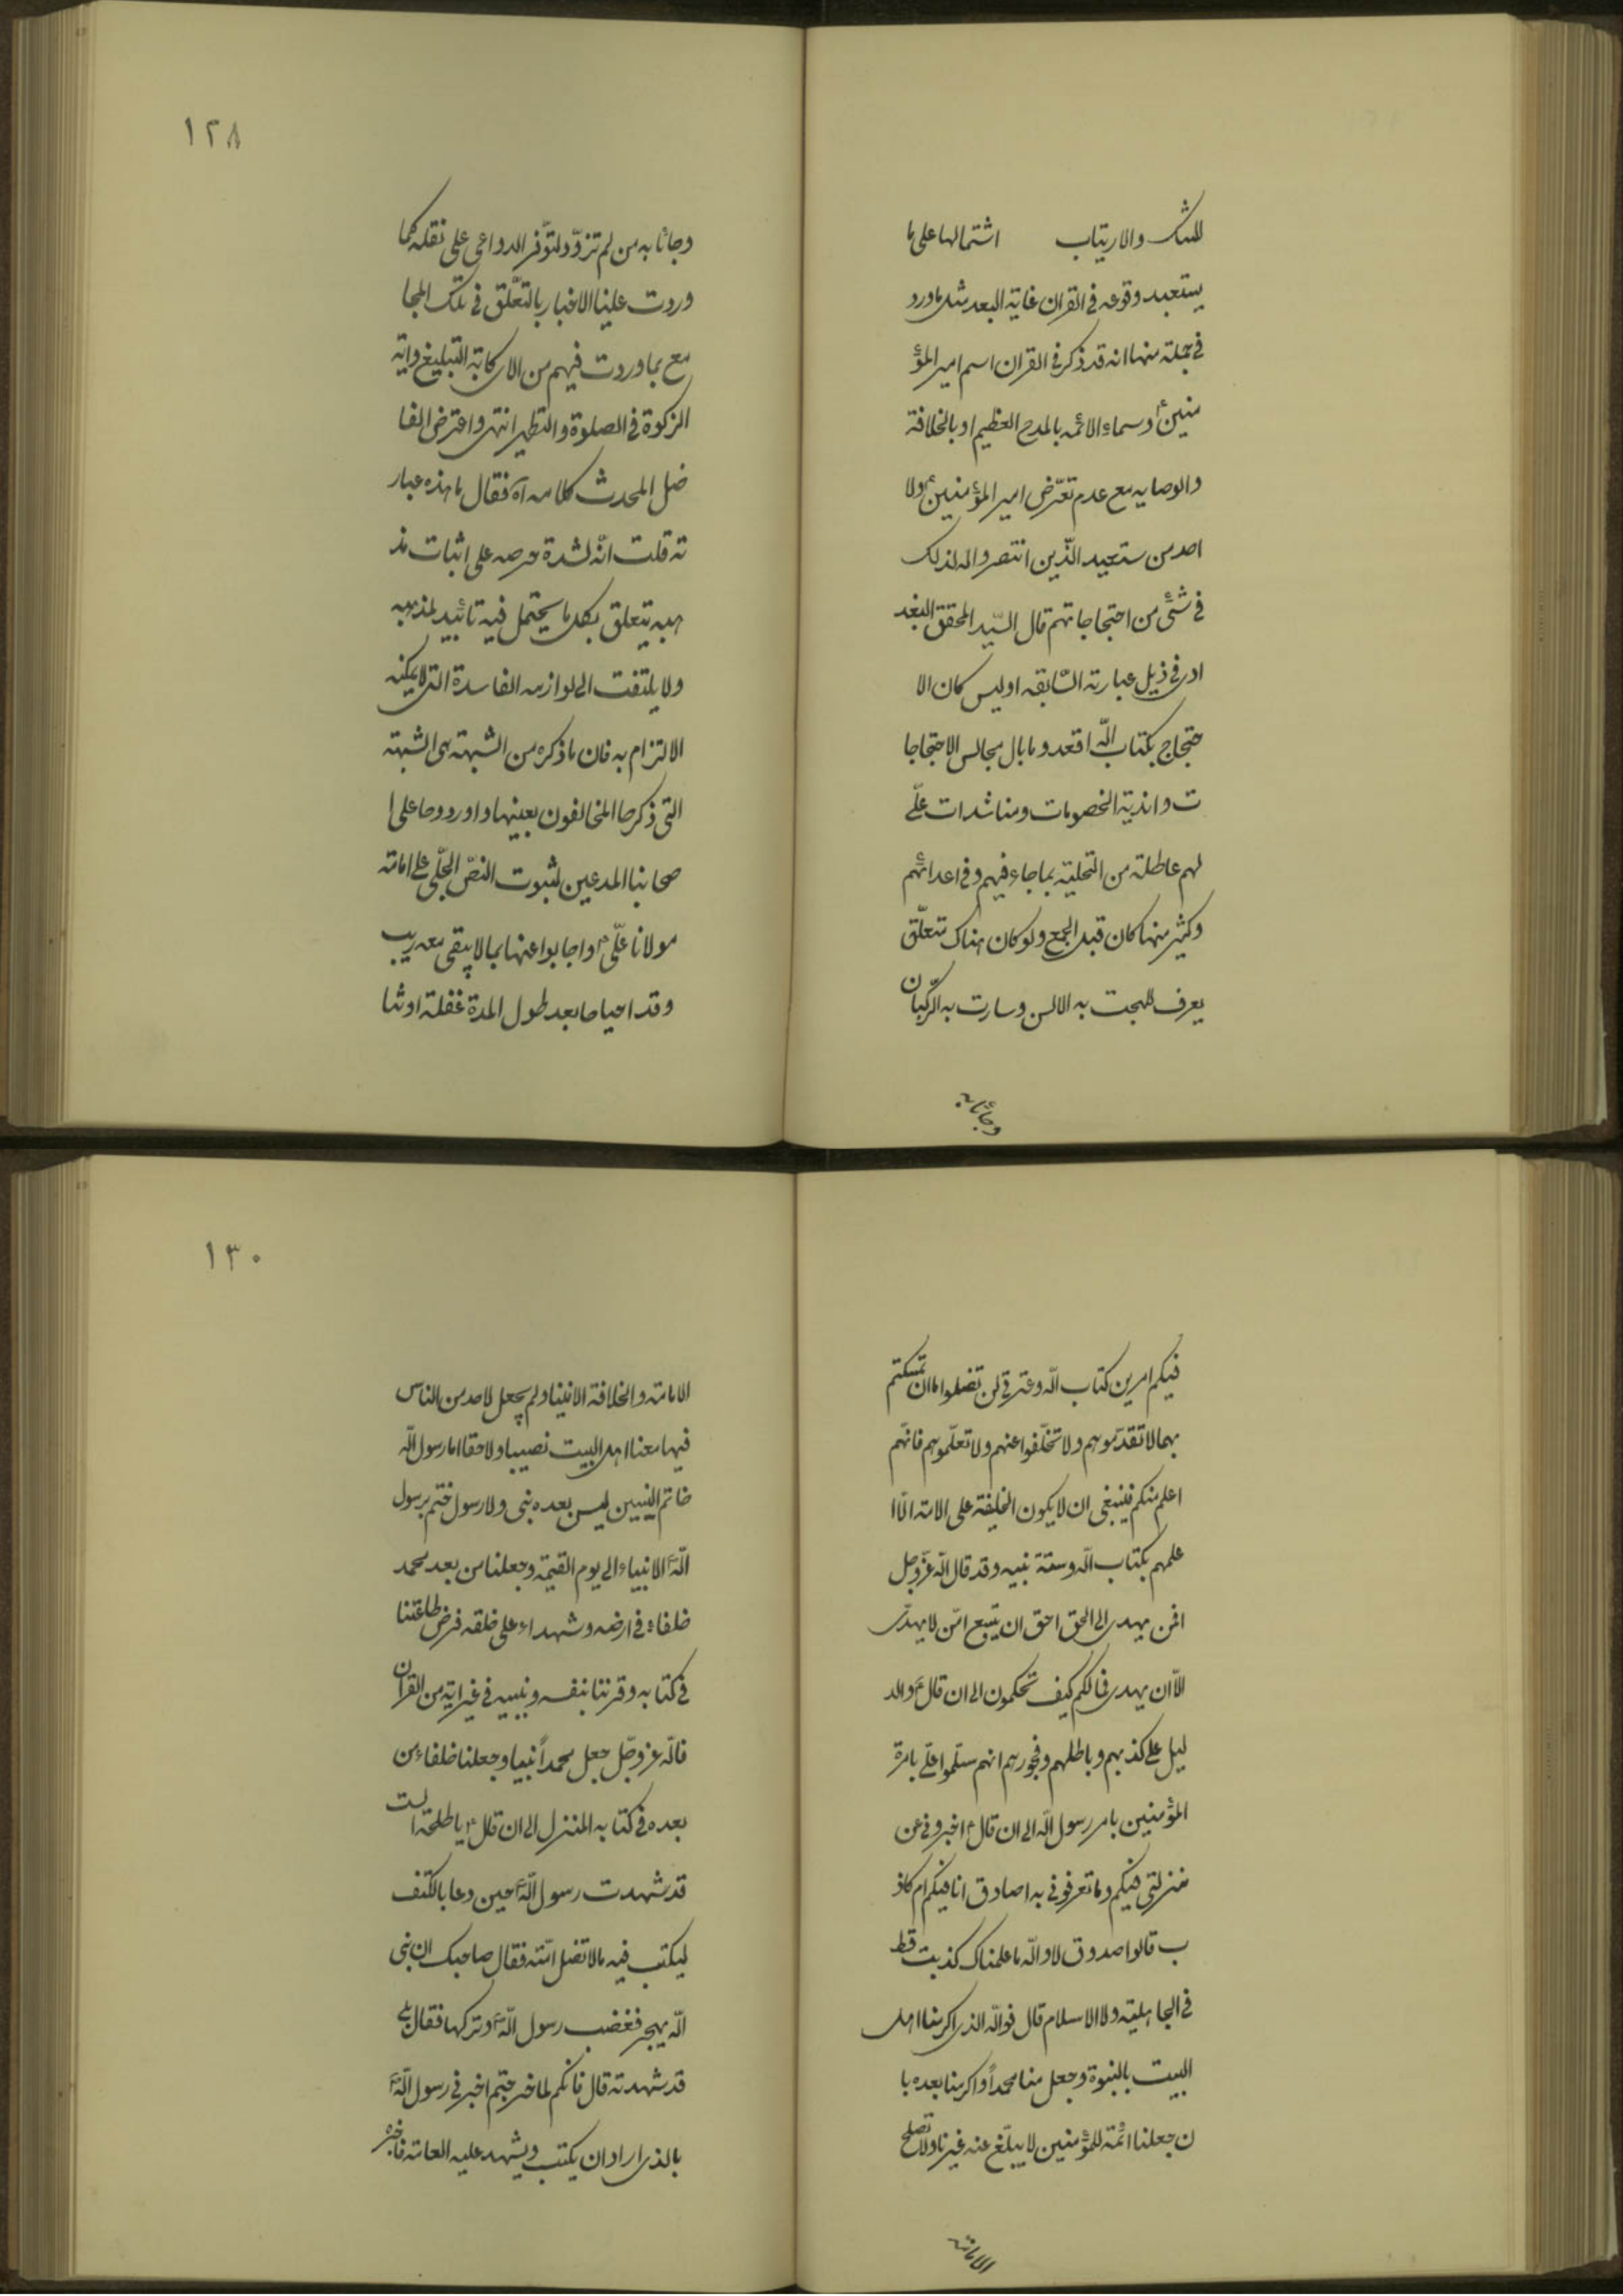 للشك والارتياب اشتمالها على ما
يستبعد وقوعه في القران غاية البعد مثل ماورد
في جملة منها انه قد ذكر في القران اسم امير المؤ
منين ع وسماء الائمه بالمدح العظيم او بالخلافة
والوصايه مع عدم تعرّض امير المؤمنين ع ولا
احد من ستعيد الّذين انتصروا له لذلك
في شئ من احتجاجاتهم قال السّيد المحقق البغد
ادى في ذيل عبارته السّابقه اوليس كان الا
حتجاج بكتاب اللّه اقعد وما بال مجالس الاحتجاجا
ت واندية الخصومات ومناشدات علّى
لهم عاطلة من التحلية بماجاء فيهم وفي اعدائهم
وكثير منها كان قبل الجمع ولو كان هناك متعلّق
يعرف للهجت به الالسن وسارت به الرّكبان
وجائنا به
١٢٨
وجائنا به من لم تزوّد لتوّفر الدواعى على نقله كما
وردت علينا الاخبار بالتعّلق في تلك المجا
مع بما وردت فيهم من الاى كاية التبليغ واية
الزكوة في الصلوة والتطهير انتهى واعترض الفا
ضل المحدث كلامه آه فقال ما هذه عبار
ته قلت انّه لشدة حرصه على اثبات مذ
هبه يتعلق بكل ما يحتمل فيه تائييد لمذهبه
ولا يلتفت الى لوازمه الفاسدة التى لا يمكنه
الالتزام به فان ماذكره من الشبهته هى الشبهته
التى ذكرها المخالفون بعينها واوردوها على ا
صحابنا المدعين لثبوت النصّ الجّلى على امامته
مولانا علّى ع واجابوا عنها بما لا يبقى معه ريب
وقد احياها بعد طول المدة غفلة او تنا
فيكم امرين كتاب اللّه وعترتى لن تضلوا ماان تمسكتم
بهما لا تقدّموهم ولا تخّلفوا عنهم ولا تعلّموهم فانهّم
اعلم منكم فينبغى ان لا يكون الخليفة على الامة الّا ا
علمهم بكتاب اللّه وسنّة نبيه وقد قال اللّه عزّوجل
افمن يهدى الى الحق احق ان يتبع امّن لا يهدّى
الاّ ان يهدى فمالكم كيف تحكمون الى ان قال ع والد
ليل على كذبهم وباطلهم وفجورهم انهم سلّموا علّى بامرة
المؤمنين بامر رسول اللّه الى ان قال ع اخبرونى عن
منزلتى فيكم وماتعرفونى به اصادق انا فيكم ام كاذ
ب قالوا صدوق لا واللّه ماعلمناك كذبت قط
في الجاهلية ولا الاسلام قال فواللّه الذى اكرمنا اهل
البيت بالنبوة وجعل منا محمداً واكرمنا بعده با
ن جعلنا ائمّة للمؤمنين لا يبلّغ عنه غيرنا ولا تصلح
الامامة
١٣٠
الامامة والخلافة الا فينا ولم يجعل لاحد من الناس
فيها معنا اهل البيت نصيبا ولا حقا اما رسول اللّه
خاتم النبيين ليس بعده نبى ولا رسول ختم برسول
اللّه الانبياء الى يوم القيمة وجعلنا من بعد محمد
خلفاء في ارضه وشهداء على خلقه فرض طاعتنا
في كتابه وقرننا بنفسه ونبيه في غير اية من القران
فاللّه عزوجّل جعل محمداً نبيا وجعلنا خلفاء من
بعده في كتابه المنزل الى ان قال ع يا طلحة الست
قد شهدت رسول اللّه حين دعا بالكتف
ليكتب فيه مالا تضل امّته فقال صاحبك ان نبى
اللّه يهجر فغضب رسول اللّه وتركها فقال بلى
قد شهدته قال فانكم لما خرجتم اخبرنى رسول اللّه
بالذى اراد ان يكتب ويشهد عليه العامة فاخبره